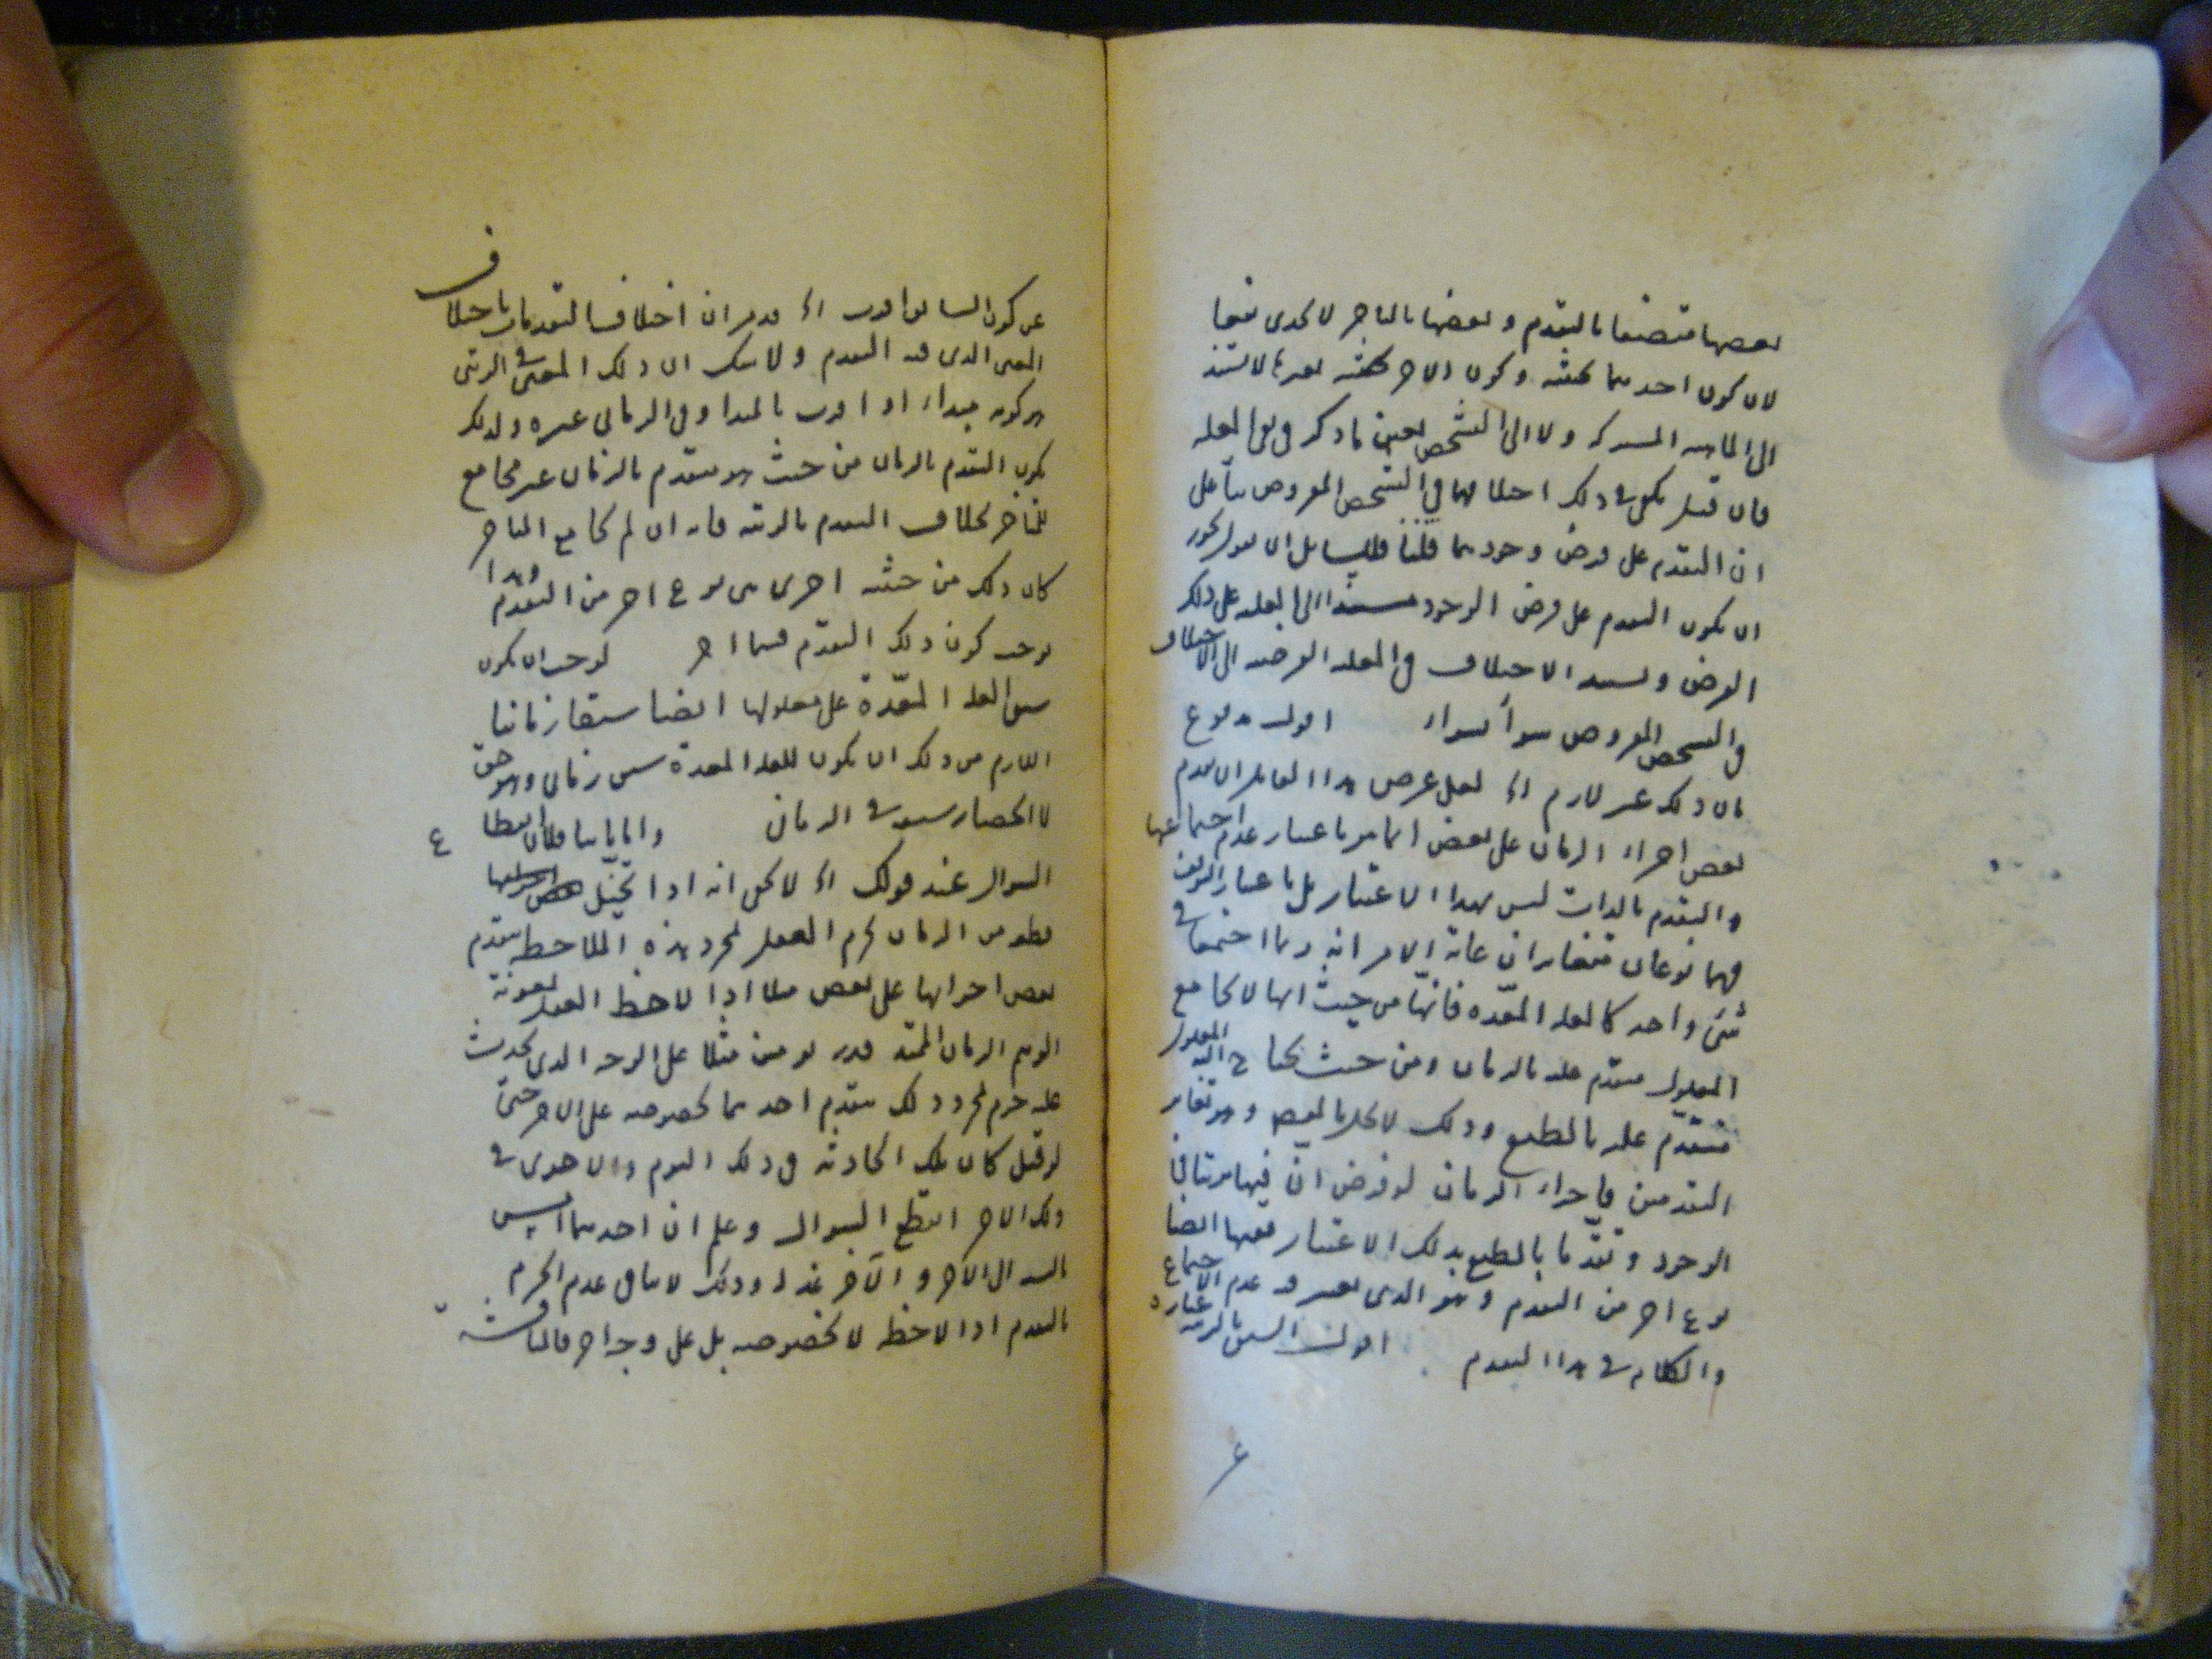 بعضها متصفا بالتقدم و بعضها بالتاخر لا يجدى نفعا
لان كون احدهما بحيثية وكون الاخر بحيثية بعدها لا تستند
الى الماهية المشتركة ولا الى التشخص بعين ما ذكر فى العلة
فان قيل يكفى فى ذلك اختلافهما فى التشخص المفروض بناء على
ان التقدم على فرض وجودهما قلنا فللسايل ان يقول يجوز
ان يكون التقدم على فرض الوجود مستندا الى العلة على ذلك
الفرض ويستند الاختلاف فى العلة الفرضية الى الاختلاف
فى التشخص المفروض سواء بسواء اقول مدفوع
بان ذلك غير لازم الخ لعل غرض هذا القايل ان تقدم
بعض اجزاء الزمان على بعض انما هو باعتبار عدم اجتماعها
والتقدم بالذات ليس بهذا الاعتبار بل باعتبار التوقف
فهما نوعان متغايران غاية الامر انه ربما اجتمعا فى
شىء واحد كالعلة المعدة فانها من حيث انها لا تجامع
المعلول متقدم عليه بالزمان ومن حيث يحتاج اليه المعلول
متقدم عليه بالطبع وذلك لا يخل بالمقصود وهو تغاير
التقدمين فاجزاء الزمان لو فرض ان فيها ترتبا فى
الوجود وتقدما بالطبع بذلك الاعتبار ففيها ايضا
نوع اخر من التقدم وهو الذى يعتبر فيه عدم الاجتماع
والكلام فى هذا التقدم اقول السبق بالرتبة عبارة
عن كون السابق اقرب الخ قد مر ان اختلاف التقدمات باختلاف
المعنى الذى فيه التقدم ولا شك ان ذلك المعنى فى الرتبى
هو كونه مبداء او اقرب بالمبدا وفى الزمانى غيره ولذلك
يكون المتقدم بالزمان من حيث هو متقدم بالزمان غير مجامع
للمتاخر بخلاف التقدم بالرتبة فانه ان لم يجامع المتاخر
كان ذلك من حيثية اخرى هى نوع اخر من التقدم وهذا
يوجب كون ذلك التقدم قسما اخر يوجب ان يكون
سبق العلة المعدة على معلولها ايضا سبقا زمانيا
اللازم من ذلك ان يكون للعلة المعدة سبق زمانى وهو حق
لا انحصار سبقه فى الزمان واما ثانيا فلان انقطاع
السوال عند قولك الخ لا يخفى انه اذا تخيل
قطعة من الزمان يجزم العقل بمجرد هذه الملاحظة بتقدم
بعض اجزائها على بعض مثلا اذا لاحظ العقل بمعونة
الوهم الزمان الممتد قدر يومين مثلا على الوجه الذى يحدث
عليه جزم بمجرد ذلك بتقدم احدهما بخصوصه على الاخر حتى
لو قيل كان تلك الحادثة فى ذلك اليوم والاخرى فى
ذلك الاخر انقطع السوال وعلم ان احدهما امس
بالنسبة الى الاخر والآخر غد له وذلك لا ينافى عدم الجزم
بالتقدم اذا لاحظه لا بخصوصه بل على وجه اخر فالمناقشة